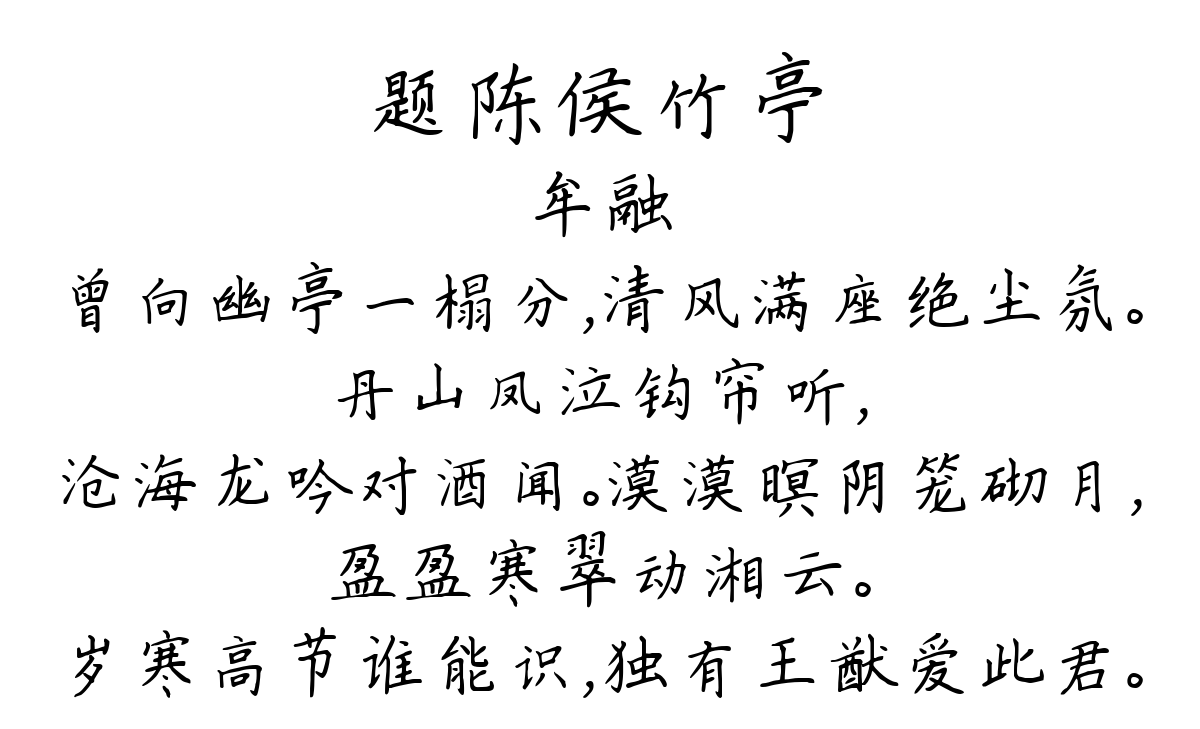 题陈侯竹亭
牟融
曾向幽亭一榻分,清风满座绝尘氛。
丹山凤泣钩帘听,
沧海龙吟对酒闻。漠漠暝阴笼砌月,
盈盈寒翠动湘云。
岁寒高节谁能识,独有王猷爱此君。